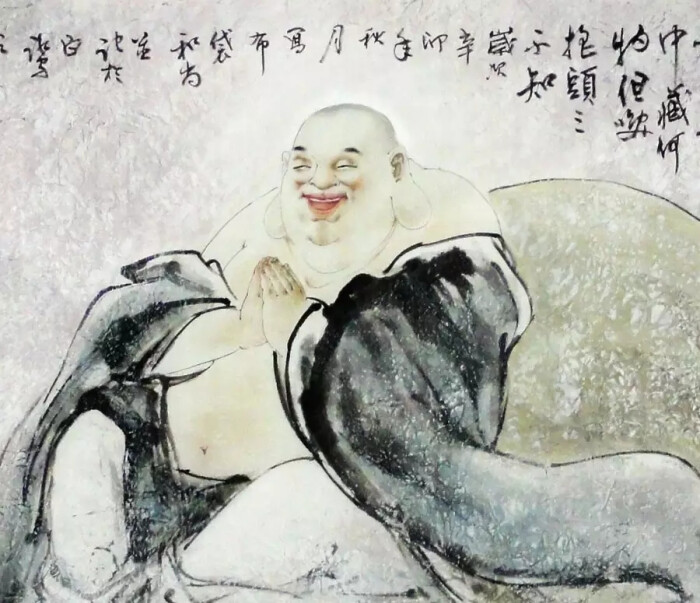 中藏何
物但咲
搖頭三
不知
歲次
辛
卯
年
秋
月
寫
布
袋
和尚
並
記於